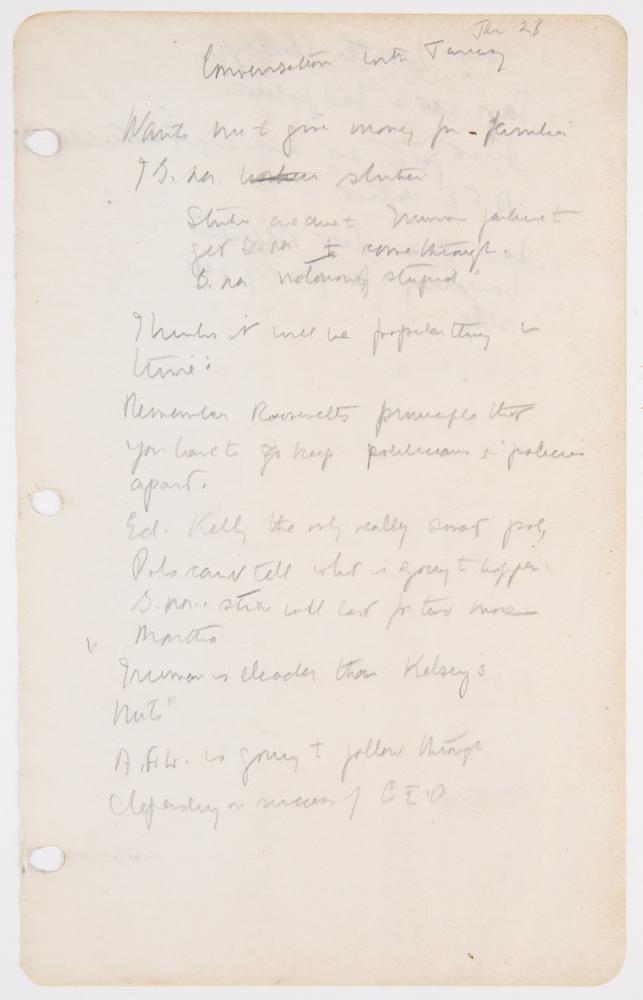 Jan 23
Conversation with
Wants me to give money for families
G. M. strikers
Strike Truman failure to
get G. M. to come through.
G. M. notoriously stupid"
Thinks it will be popular thing in
time:
Remember Roosevelts principle that
you have to keep politicians & policies
apart.
Ed. Kelly the only really smart pol,
Pols can't tell what is going to happen.
G. M. strike will last for two more
months
"Truman is deader than Kelsey's
nuts"
A.F.L. is going to follow through
depending on success of C I O